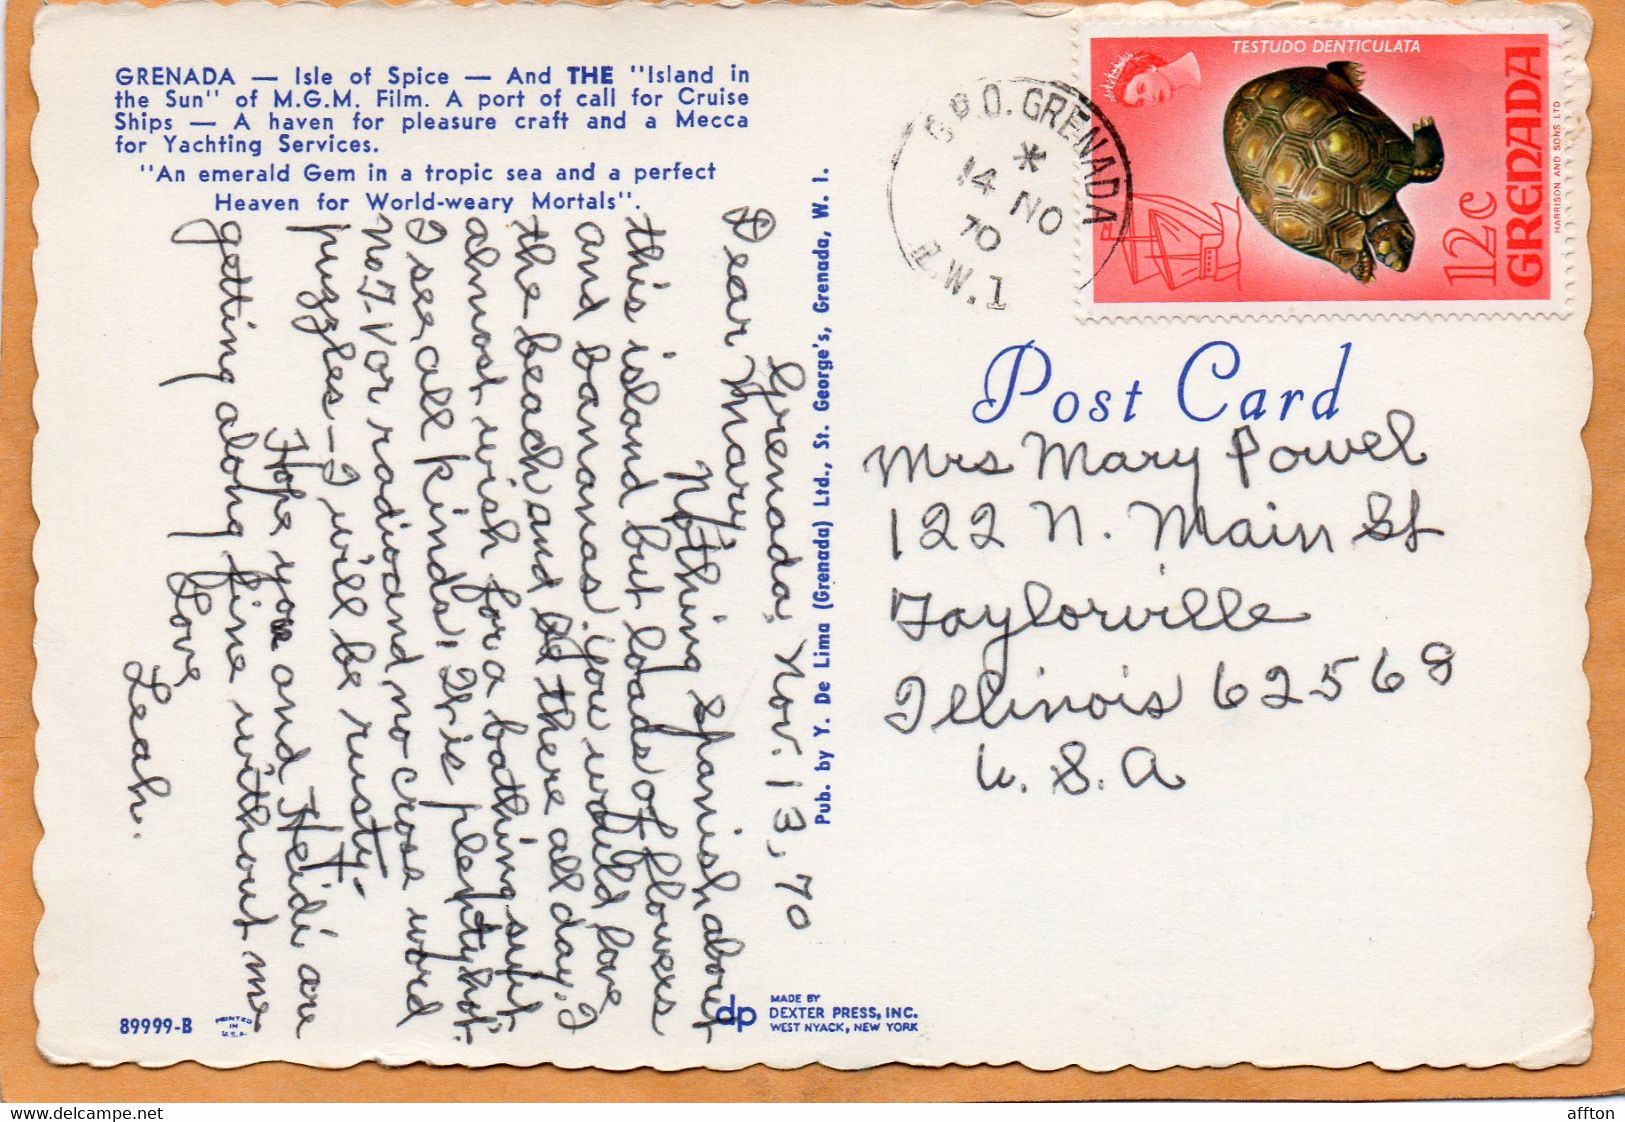 GRENADA — Isle of Spice — And THE "Island in
the Sun" of M.G.M. Film. A port of call for Cruise
Ships — A haven for pleasure craft and a Mecca
for Yachting Services.
"An emerald Gem in a tropic sea and a perfect
Heaven for World-weary Mortals".
Grenada, Nov. 13, 70
Dear Mary
Nothing Spanish about
this island but loads of flowers
and bananas. you would love
the beach and be there all day. I
almost wish for a bathing suit
I see all kinds. It is plenty hot.
No. T. V or radio and no cross word
puzzles - I will be rusty.
Hope you and Heidi are
getting along fine without me
Love
Leah.
Pub. by Y. De Lima (Grenada) Ltd., St. George's, Grenada, W. I.
89999-B
PRINTED
IN
U.S.A.
dp
MADE BY
DEXTER PRESS, INC.
WEST NYACK, NEW YORK
G.P.O. GRENADA
14 NO
70
B.W.I
TESTUDO DENTICULATA
12c
GRENADA
HARRISON AND SONS LTD
Post Card
Mrs Mary Powel
122 N. Main St
Taylorville
Illinois 62568
U. S. A
affton